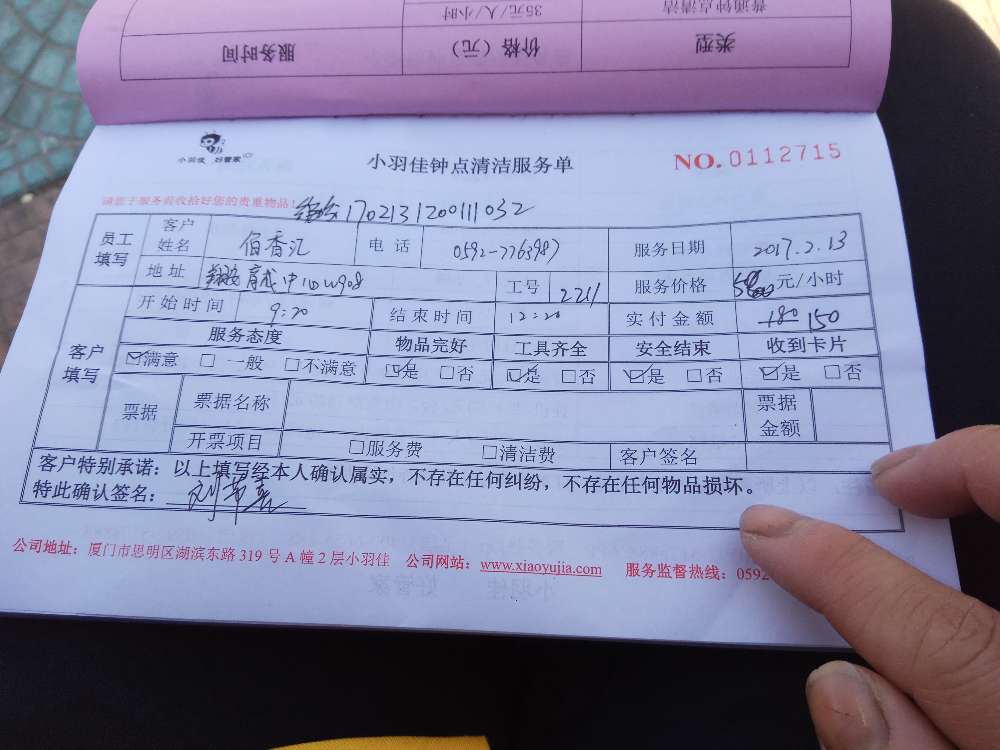 普通钟点清洁 35元/人/小时
类型 价格（元） 服务时间
小羽佳 好管家
小羽佳钟点清洁服务单
NO.0112715
请您于服务前收拾好您的贵重物品！
170213120011032
员工填写 客户姓名 佰香汇 电话 0592-7763987 服务日期 2017.2.13
地址 翔安育成中心W908 工号 2211 服务价格 元/小时
客户填写 开始时间 9:20 结束时间 12:20 实付金额 180 150
服务态度 物品完好 工具齐全 安全结束 收到卡片
☑满意 □一般 □不满意 ☑是 □否 ☑是 □否 ☑是 □否 ☑是 □否
票据 票据名称 票据金额
开票项目 □服务费 □清洁费 客户签名
客户特别承诺：以上填写经本人确认属实，不存在任何纠纷，不存在任何物品损坏。
特此确认签名：
公司地址：厦门市思明区湖滨东路 319 号 A 幢 2 层小羽佳 公司网站：www.xiaoyujia.com 服务监督热线：0592